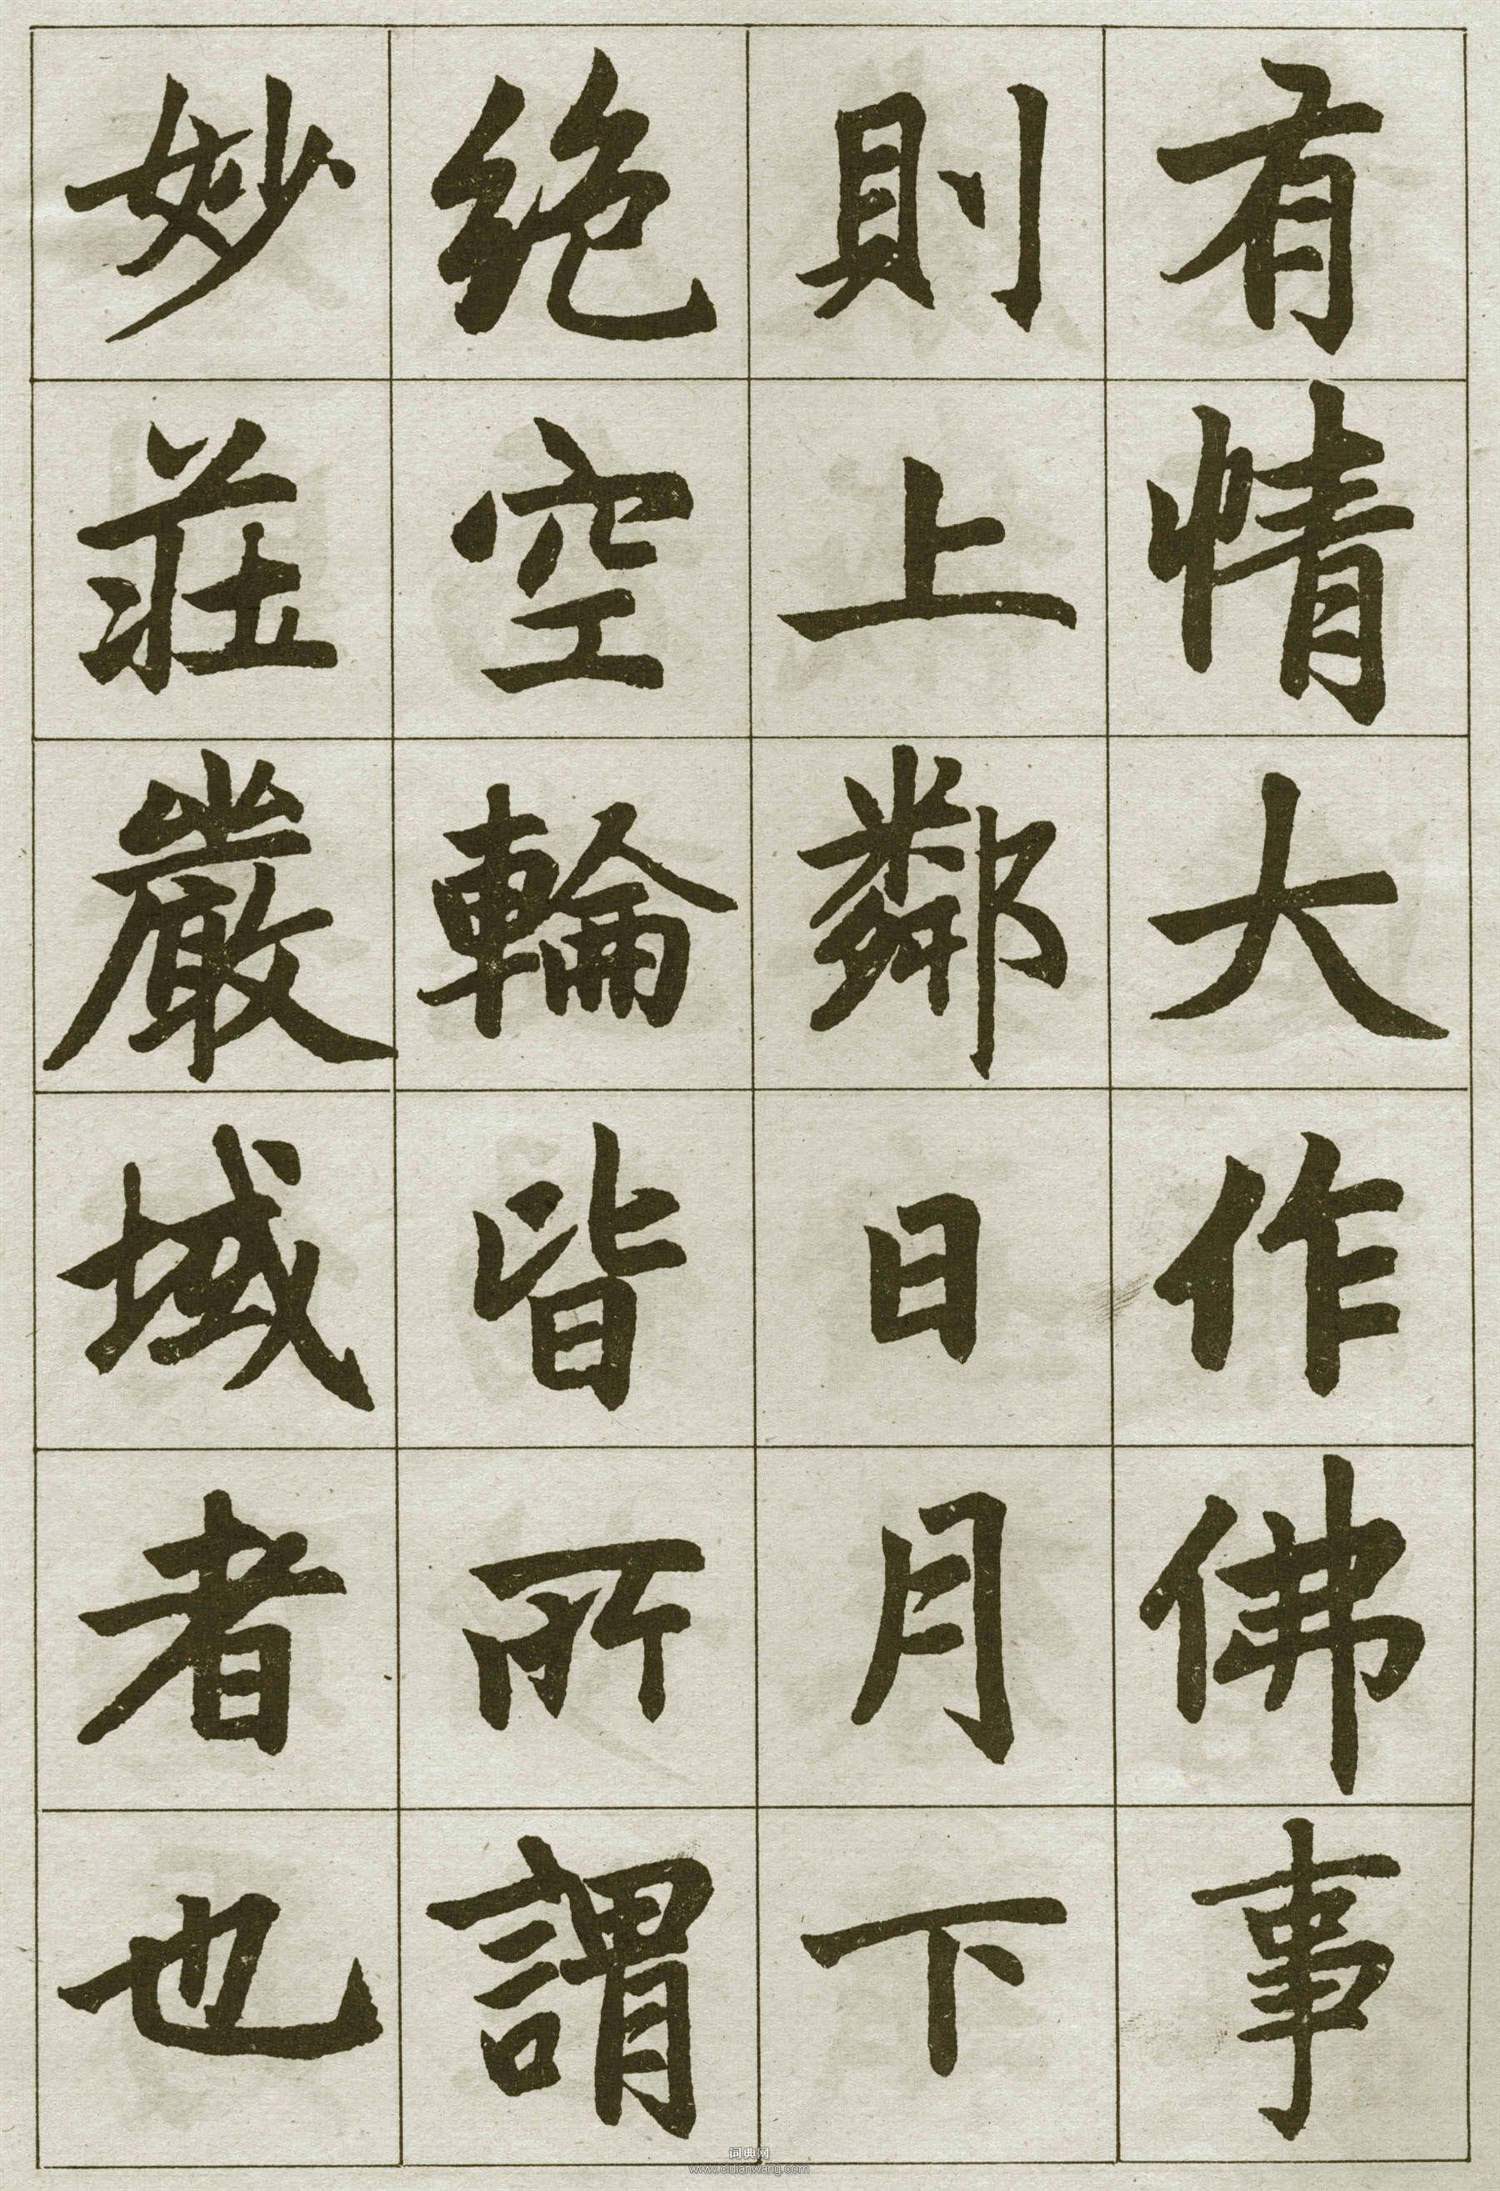 有情大作佛事
則上鄰日月下
絶空輪皆所謂
妙莊嚴域者也
词典网
www.cidianwang.com